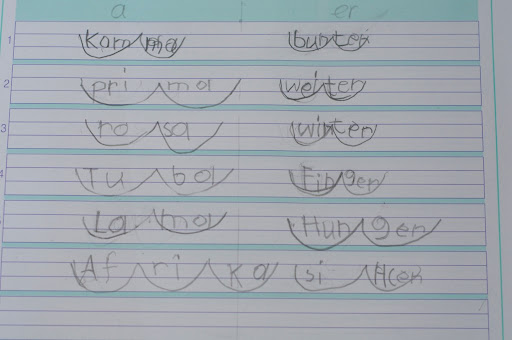 a er
1 Komma bunter
2 prima weiter
3 rosa winter
Tuba Finger
Lama Hunger
Afrika sicher